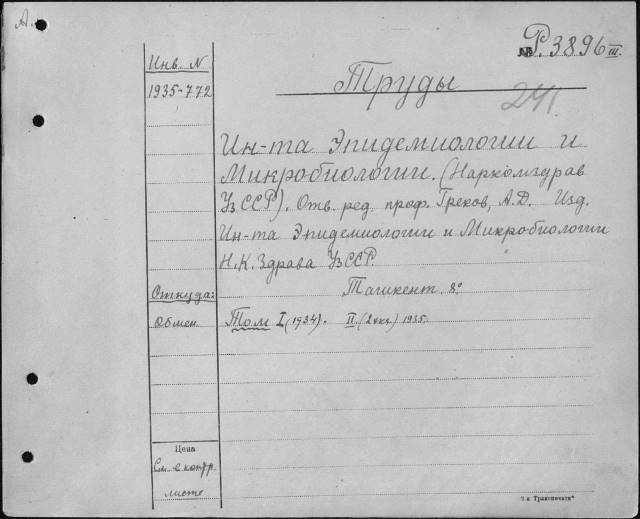 А.
№ Р.3896 III.
Инв. N
1935-772
Труды
241
Ин-та Эпидемиологии и
Микробиологии. (Наркомздрав
УзССР). Отв. ред. проф. Греков, А.Д. Изд.
Ин-та Эпидемиологии и Микробиологии
Н.К.Здрава УзССР.
Ташкент 8°
Откуда:
Обмен.
Том I (1934). II. (2 экз.) 1935.
Цена
См. в контр.
листе
"